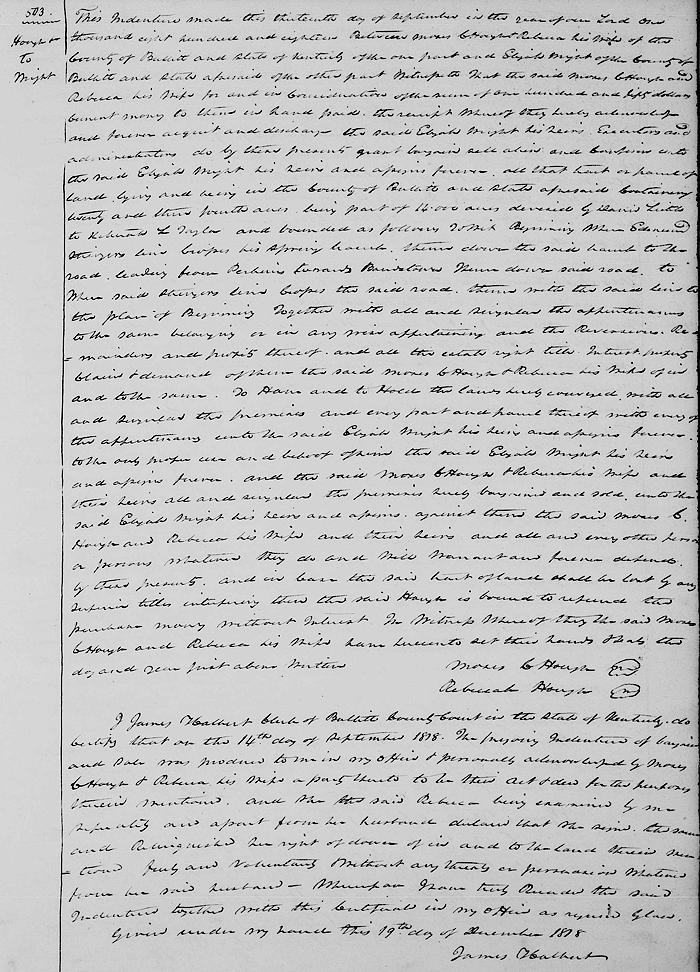 503.
Hough &c
to
Wright
This Indenture made this thirteenth day of September in the year of our Lord one
thousand eight hundred and eighteen Between Moses C Hough & Rebecca his Wife of the
County of Bullitt and State of Kentucky of the one part and Elijah Wright of the County of
Bullitt and State aforesaid of the other part Witnesseth That the said Moses C Hough and
Rebecca his Wife for and in Consideration of the sum of one hundred and fifty dollars
Current money to them in hand paid, the receipt Whereof they hereby acknowledge
and forever acquit and discharge the said Elijah Wright his heirs, Executors and
administrators do by these presents grant bargain sell alien and Confirm unto
the said Elijah Wright his heirs and assigns forever, all that tract or parcel of
Land lying and being in the County of Bullitt and State aforesaid Containing
twenty and three fourth acres, being part of 14000 acres
to L Taylor and bounded as follows Towit Beginning Where Edmund
Stringers line Crosses his Spring branch, thence down the said branch to the
road, leading from towards Bairdstown Thence down said road, to
Where said Stringers line Crosses the said road, thence with the said line to
the place of Beginning Together with all and singular the appurtenances
to the same belonging or in any wise appertaining and the Reversions Re=
=mainders and profits thereof, and all the estate right title Interest property
Claim & demand of them the said Moses C Hough & Rebecca his Wife of in
and to the same. To Have and to Hold the land hereby conveyed, with all
and Singular the premises and every part and parcel thereof with every of
the appurtenances unto the said Elijah Wright his heirs and assigns forever.
to the only proper use and behoof of him the said Elijah Wright his heirs
and assigns forever. and the said Moses C Hough & Rebecca his Wife and
their heirs all and singular the premises hereby bargained and sold, unto the
said Elijah Wright his heirs and assigns, against them the said Moses C.
Hough and Rebecca his Wife and their heirs and all and every other person
or persons whatever they do and Will Warrant and forever defend
by these presents, and in Case the said tract of land shall be lost by any
superior title interfering then the said Hough is bound to refund the
purchase money without Interest In Witness Whereof they the said Moses
C Hough and Rebecca his Wife have hereunto set their hands & Seals the
day and year first above Written
Moses C Hough
Rebeccah Hough
I James Halbert Clerk of Bullitt County Court in the State of Kentucky. do
Certify that on the 14th day of September 1818. The foregoing Indenture of bargain
and Sale was produced to me in my office & personally acknowledged by Moses
C Hough & Rebecca his Wife a party thereto to be their Act & deed for the purposes
therein mentioned. and She the said Rebecca being examined by me
seperately and apart from her husband declared that She signed the same
and Relinquished her right of dower of in and to the land therein men
=tioned freely and Voluntarily Without any threats or persuasion Whatever
from her said husband — Whereupon I have truly Recorded the said
Indenture together with this Certificate in my office as required by law.
Given under my hand this 19th day of December 1818
James Halbert